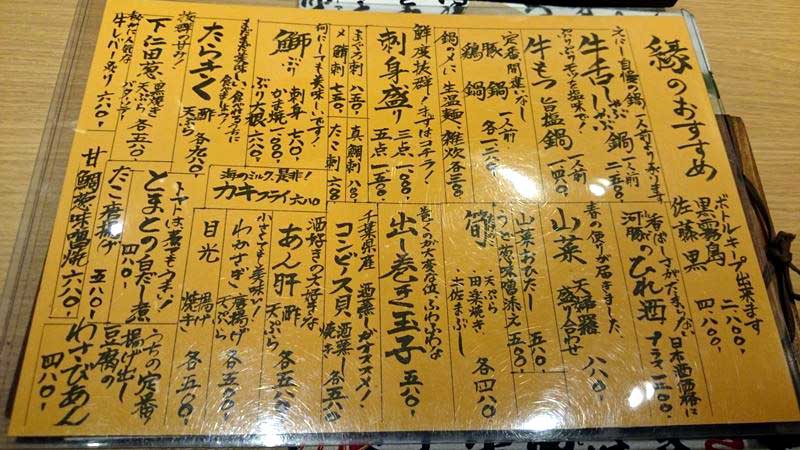 縁のおすすめ
元にし!自慢の鍋 一人前より承ります
牛舌しゃぶしゃぶ鍋 一人前 二五八〇
ぷりぷりモツを塩味で!
牛もつ旨塩鍋 一人前 一四八〇
定番間違いなし
豚鍋 鶏鍋 一人前 各一二八〇
鍋の〆に 生温麺・雑炊 各三八〇
鮮度抜群!まずはコチラ!
刺身盛り 三点 一八〇〇、 五点
まぐろ刺 七八〇 真鯛刺 八八〇
〆鯖刺 七五〇 たこ刺
何にしても美味しいです!
鰤 ぶり 刺身 七八〇
かま焼 一〇八〇
ぶり大根 六八〇
たらきく 酢 天ぷら 各九八〇
抜群の甘み!
下仁田葱 黒焼き 天ぷら 各五八〇
牛レバー炙り 六八〇、
ボトルキープ出来ます
黒霧島 二八〇〇、
佐藤 黒 四八〇〇、
香ばしさがたまらない 日本酒価格に
河豚のひれ酒 プラス二〇〇、
春の便りが届きました、
山菜 天婦羅盛り合わせ 八八〇
山菜おひたし 五八〇
うど葱味噌添え 五八〇、
筍 天ぷら 田楽焼 土佐まぶし 各四八〇
巻くのが大変な位ふわふわな
出し巻き玉子 五八〇
千葉県産 酒蒸しがオススメ!
コンビーノス貝 酒蒸し 焼き 各五八〇
酒好きの大好きな
あん肝 酢 天ぷら 各五八〇
小さくても美味い!
わかさぎ 唐揚げ 天ぷら 各五八〇
目光 揚げ 焼き 各五八〇
海のミルク、是非!
カキフライ 六八〇
トマトは煮てもうまい!
とまとの白だし煮 四八〇
うちの定番!
揚げ出し豆腐のわさびあん 四八〇、
たこ唐揚げ 五八〇
甘鯛葱味噌焼 六八〇、